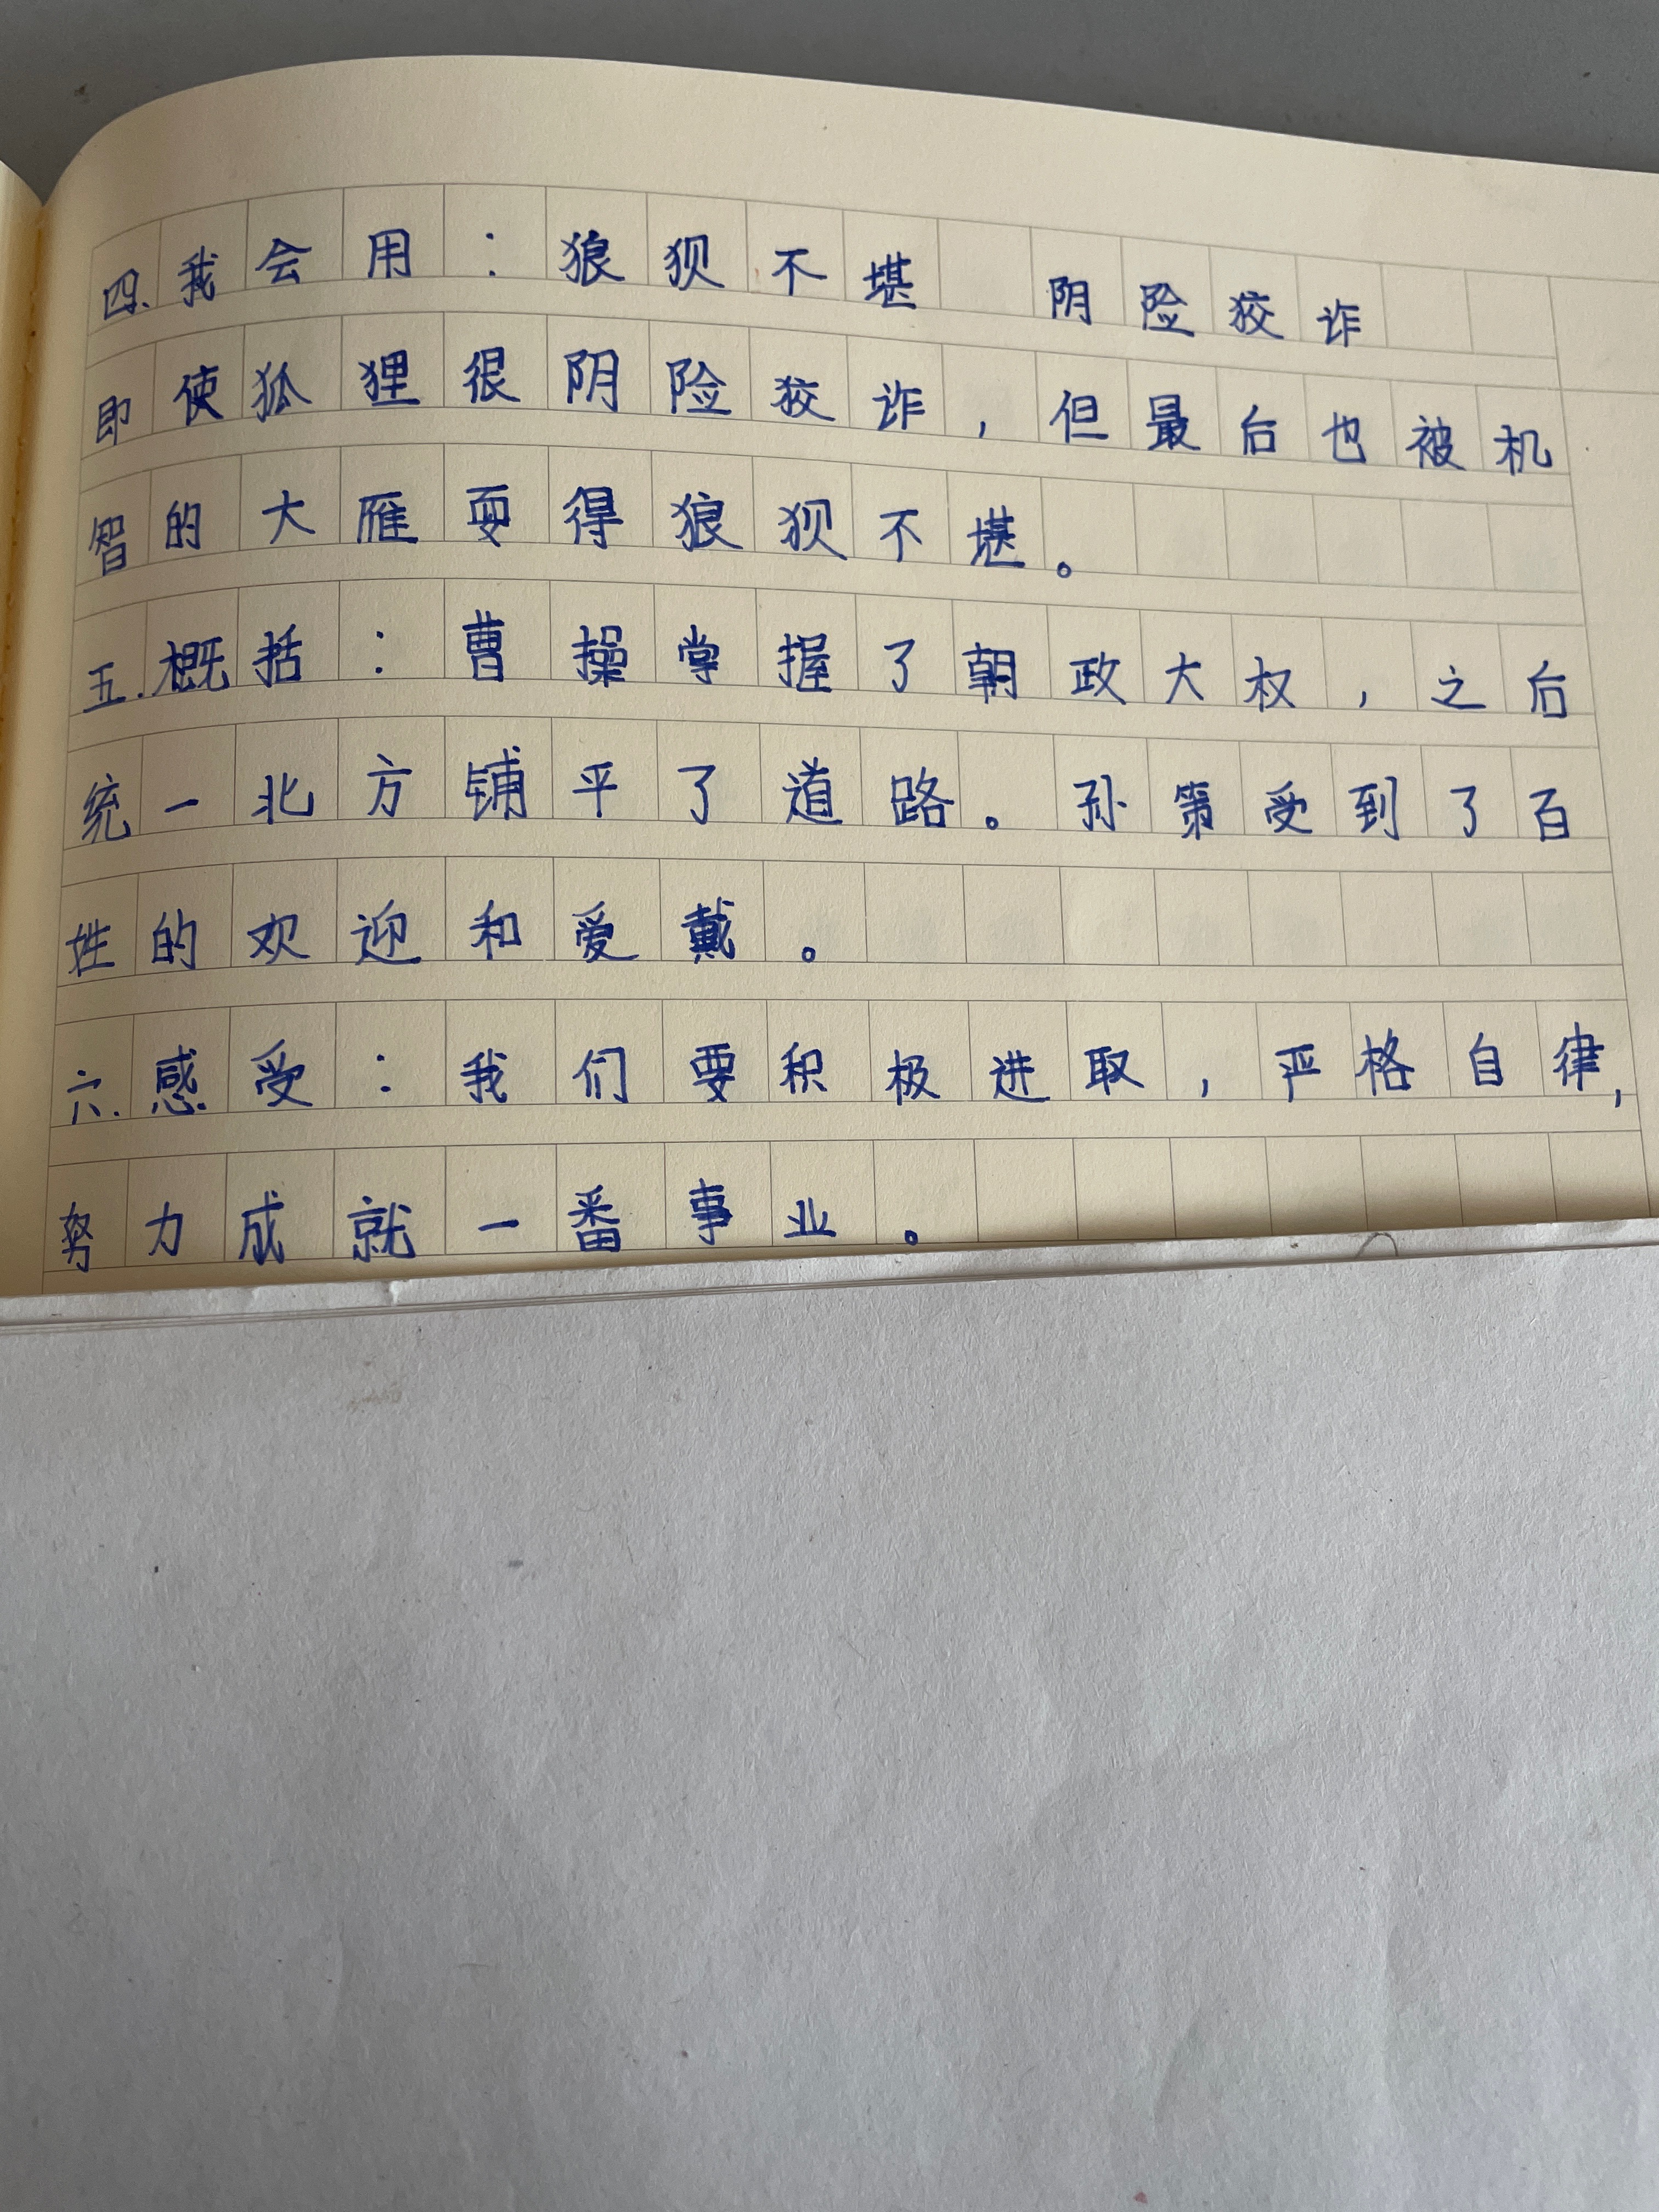 四.我会用：狼狈不堪 阴险狡诈
即使狐狸很阴险狡诈，但最后也被机
智的大雁耍得狼狈不堪。
五.概括：曹操掌握了朝政大权，之后
统一北方铺平了道路。孙策受到了百
姓的欢迎和爱戴。
六.感受：我们要积极进取，严格自律，
努力成就一番事业。